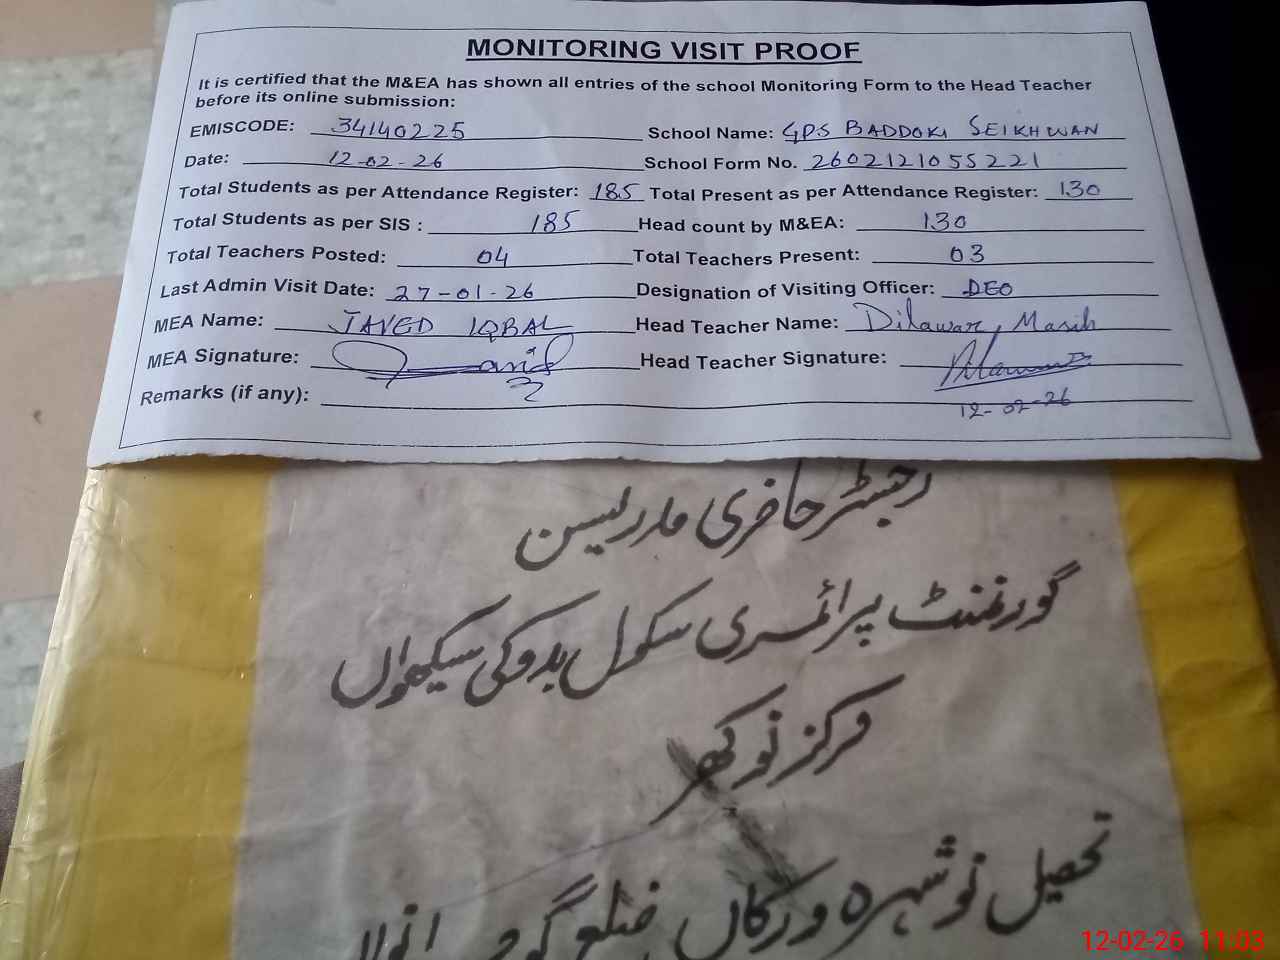 MONITORING VISIT PROOF
It is certified that the M&EA has shown all entries of the school Monitoring Form to the Head Teacher
before its online submission:
EMISCODE: 34140225 School Name: GPS BADDOKI SEIKHWAN
Date: 12-02-26 School Form No. 2602121055221
Total Students as per Attendance Register: 185 Total Present as per Attendance Register: 130
Total Students as per SIS : 185 Head count by M&EA: 130
Total Teachers Posted: 04 Total Teachers Present: 03
Last Admin Visit Date: 27-01-26 Designation of Visiting Officer: DEO
MEA Name: JAVED IQBAL Head Teacher Name: Dilawar Masih
MEA Signature: Head Teacher Signature:
Remarks (if any): 12-02-26
رجسٹر حاضری مدرسین
گورنمنٹ پرائمری سکول بدوکی سیکھواں
مرکز نوکھر
تحصیل نوشہرہ ورکاں ضلع گوجرانوالہ
12-02-26 11:03